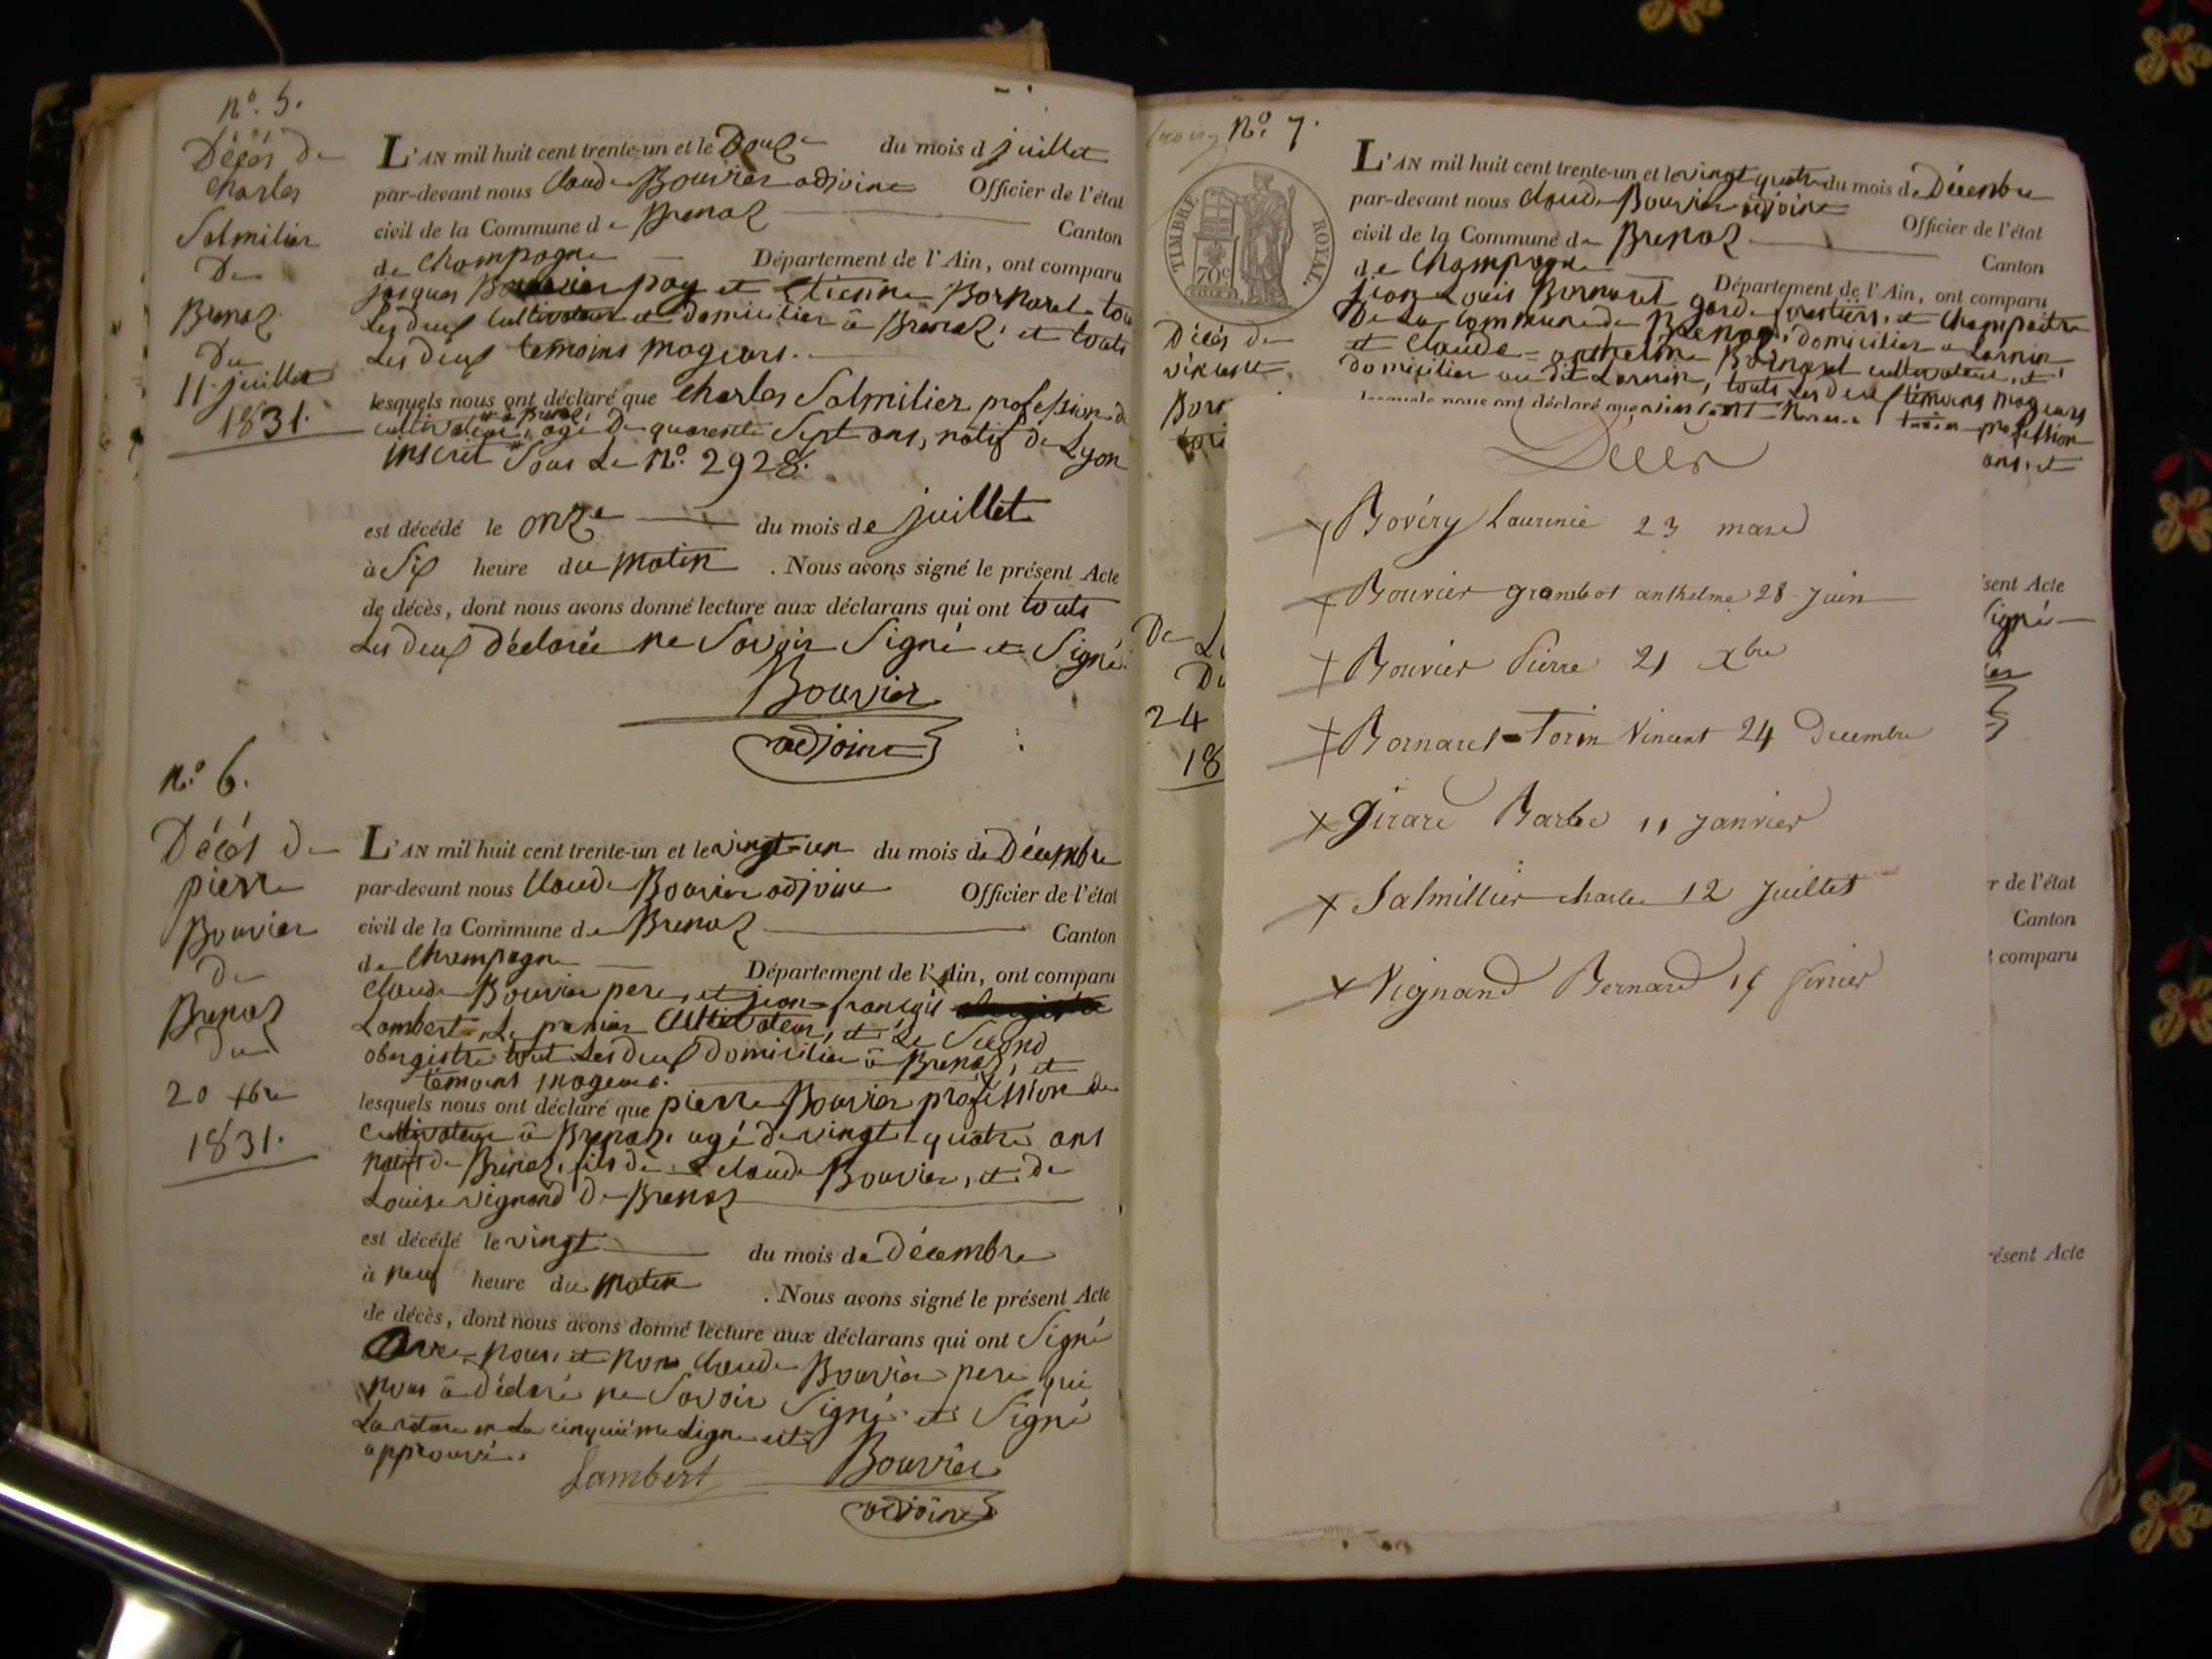 n.° 5.
Décés de
Charles
Salmilier
De
Brenaz
Du
11 juillet
1831.
L'AN mil huit cent trente-un et le Douze du mois d juillet
par-devant nous Claude Bouvier adjoint Officier de l'état
civil de la Commune de Brenaz Canton
de Champagne Département de l'Ain, ont comparu
jacques pay et Etienne Bornaret tou
Les deux Cultivateur et domicilier â Brenaz, et touts
Les deux temoins mageurs.
lesquels nous ont déclaré que Charles Salmilier profession de
cultivateur à Brenaz, agé De quarente Sept ans, natif de Lyon
inscrit Sous Le N.° 2928.
est décédé le onze du mois de juillet
à Six heure du matin . Nous avons signé le présent Acte
de décès, dont nous avons donné lecture aux déclarans qui ont touts
Les deux déclarée ne Savoir Signé et Signé.
Bouvier
adjoint
n.° 6.
Décés De
pierre
Bouvier
de
Brenaz
du
20 xbre
1831.
L'AN mil huit cent trente-un et le vingt-un du mois de Décembre
par-devant nous Claude Bouvier adjoint Officier de l'état
civil de la Commune de Brenaz Canton
de Champagne Département de l'Ain, ont comparu
Claude Bouvier pere, et jean françois
Lambert, Le premier Cultivateur, et Le Second
obergiste tout Les deux Domicilier â Brenaz, et
témoins mageurs.
lesquels nous ont déclaré que pierre Bouvier profession de
cultivateur â Brenaz, agé de vingt quatre ans
natif de Brenaz, fils de Claude Bouvier, et de
Louise vignand De Brenaz
est décédé le vingt du mois de Décembre
à neuf heure du matin . Nous avons signé le présent Acte
de décès, dont nous avons donné lecture aux déclarans qui ont Signé
Avec nous, et non Claude Bouvier pere qui
nous â déclaré ne Savoir Signé et Signé
La rature en La cinquiéme Ligne est
approuvé.
Lambert Bouvier
adjoint
N.° 7.
TIMBRE ROYAL.
70c
Décés De
vincent
Born
tori
De L
Du
24
18
L'AN mil huit cent trente-un et le vingt quatre du mois de Décembre
par-devant nous Claude Bouvier adjoint Officier de l'état
civil de la Commune de Brenaz Canton
de Champagne Département de l'Ain, ont comparu
jean Louis Bornaret garde forestiers, et Champaitre
De La Commune de Brenaz, domicilier a Larnin
et Claude anthelme Bornaret cultivateur, et
domicilier au dit Larnin, touts Les deux témoins mageurs
lesquels nous ont déclaré que vincent Bornaret torin profession
ans, et
Décès
Bovéry Laurence 23 mars
Bouvier grambot anthelme 28 Juin
Bouvier Pierre 21 xbre
Bornaret-Torin Vincent 24 Decembre
Girard Barbe 11 Janvier
Salmillier charles 12 Juillet
Vignand Bernard 15 fevrier
sent Acte
Signé
r de l'état
Canton
comparu
résent Acte